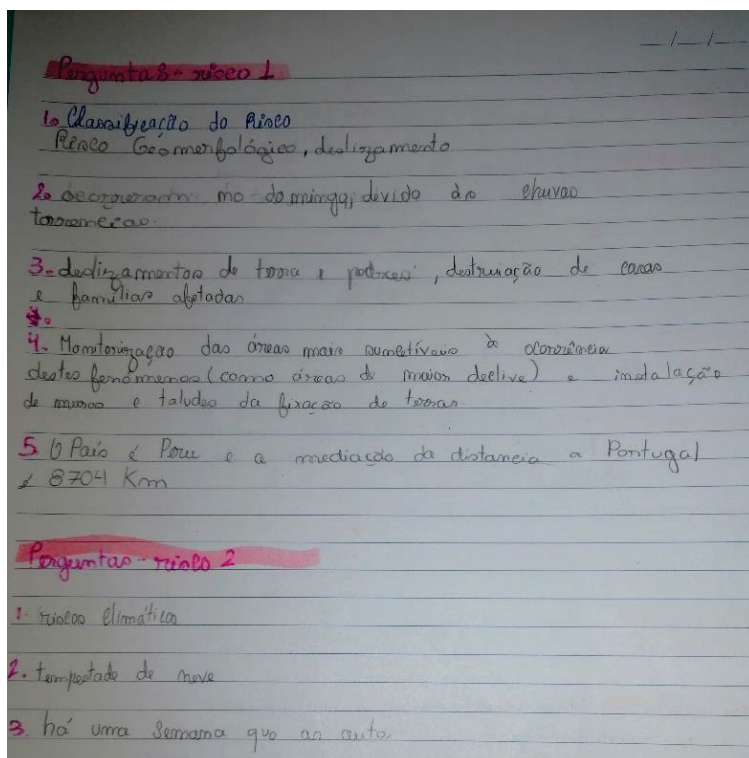 __/__/__
Perguntas - risco 1
1. Classificação do Risco
Risco Geomorfológico, deslizamento
2. decorreram no domingo, devido às chuvas
torrenciais.
3. deslizamentos de terra e pedras, destruição de casas
e famílias afetadas
4. Monitorização das áreas mais sumetíveis à ocorrência
destes fenómenos (como áreas de maior declive) e instalação
de muros e taludes da fixação de terras.
5. O País é Peru e a mediação da distancia a Portugal
é 8704 Km
Perguntas - risco 2
1. riscos climáticos
2. tempestade de neve
3. há uma semana que as auto